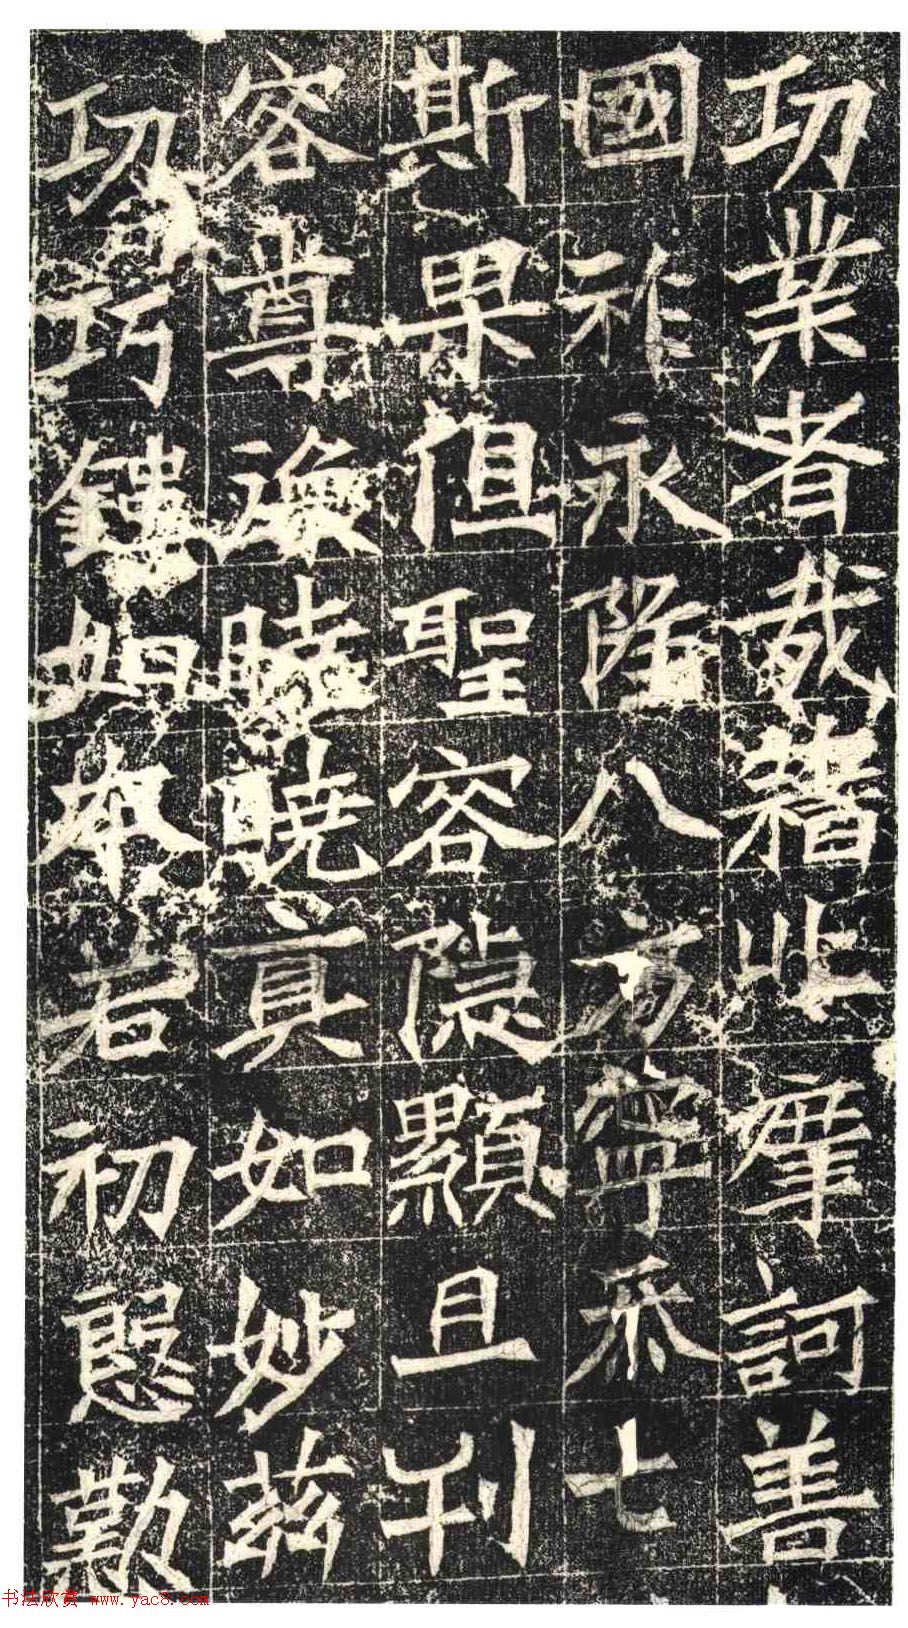 功業者哉藉此摩訶善
國祚永隆八方寧泰七
斯果但聖容隱顯旦刊
容尊渙曉曉真如妙茲
功巧鏤如本若初慇懃
书法欣赏 www.yac8.com